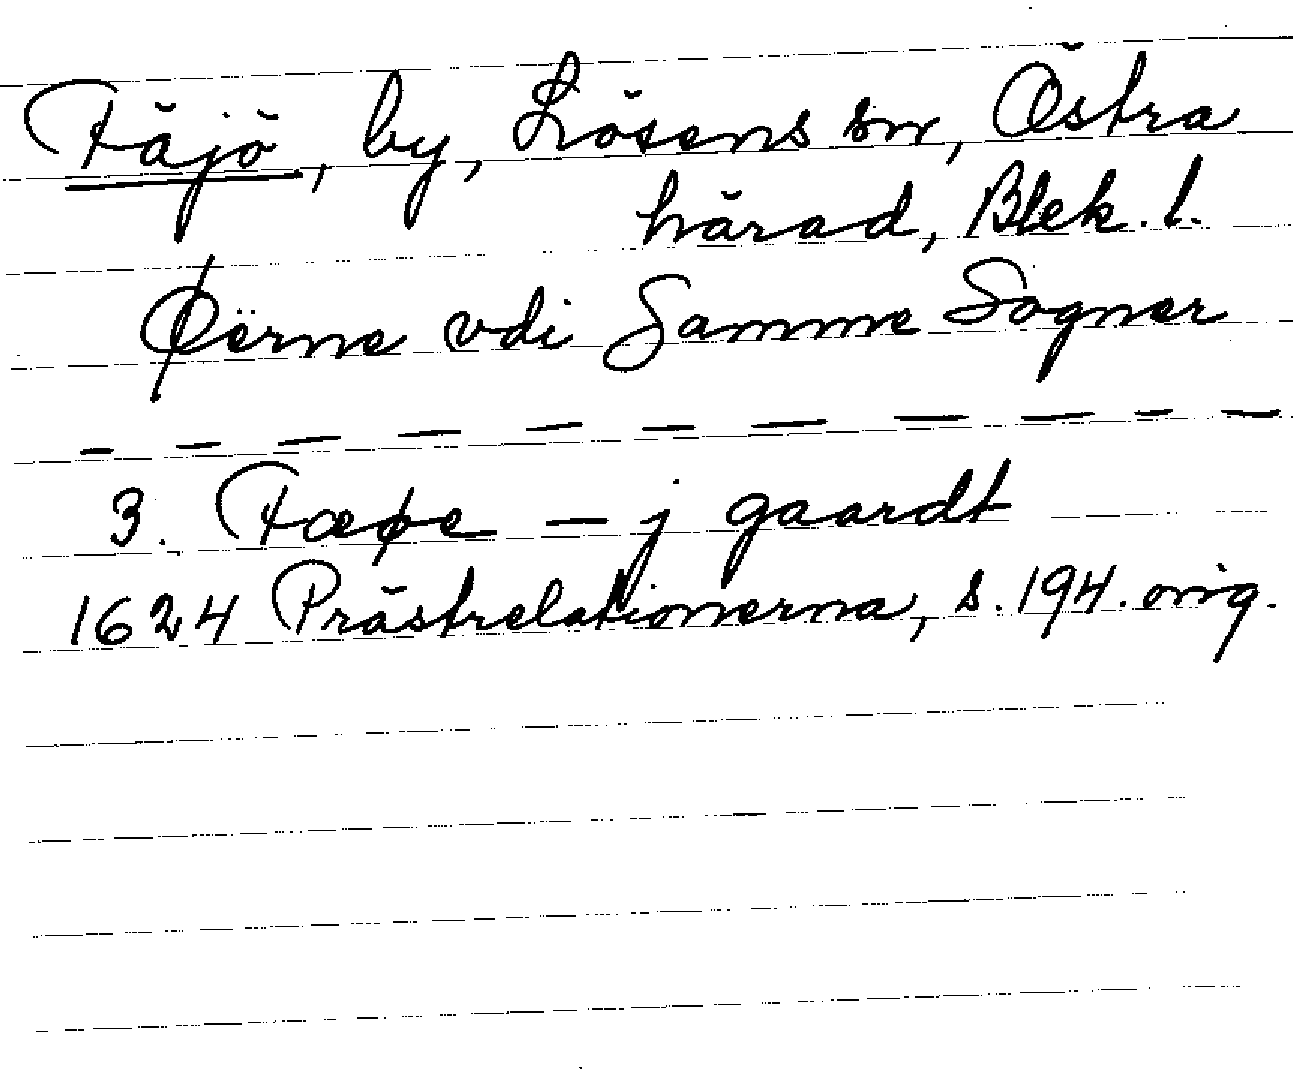 Fäjö, by, Lösens sn, Östra
härad, Blek. l.
Øërne vdi Samme Sogner
— — — — — — — — — — —
3. Fæøe — j gaardt
1624 Prästrelationerna, s. 194. orig.